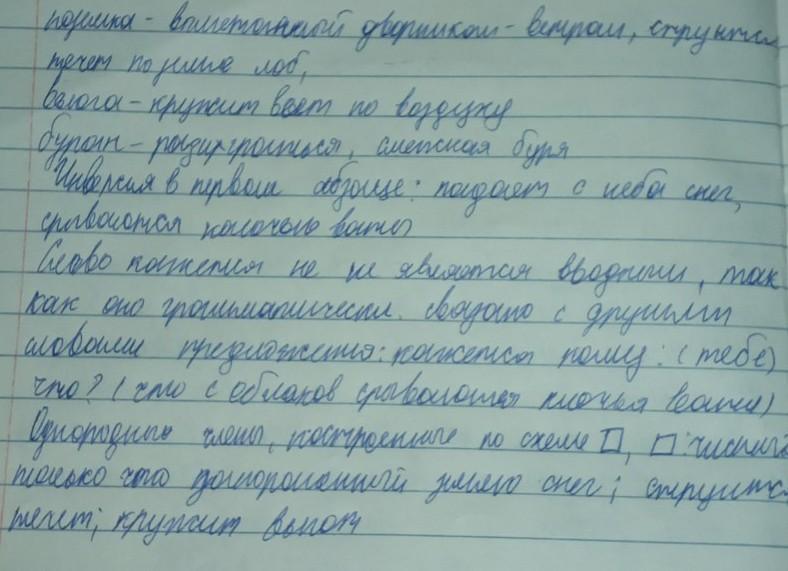 позёмка - выметанный дворником - ветром, струится
течет по земле
вьюга - кружит веет по воздуху
буран - разыграться, снежная буря
Инверсия в первом абзаце: падает с неба снег,
срываются клочья ваты
Слово кажется не не является вводным, так
как оно грамматическ. связано с другими
словами предложения: кажется кому: (тебе)
что? (что с облаков срываются клочья ваты)
Однородные члены, построенные по схеме □, □: чистый
только что подаренный земле снег; струится
течет; кружит